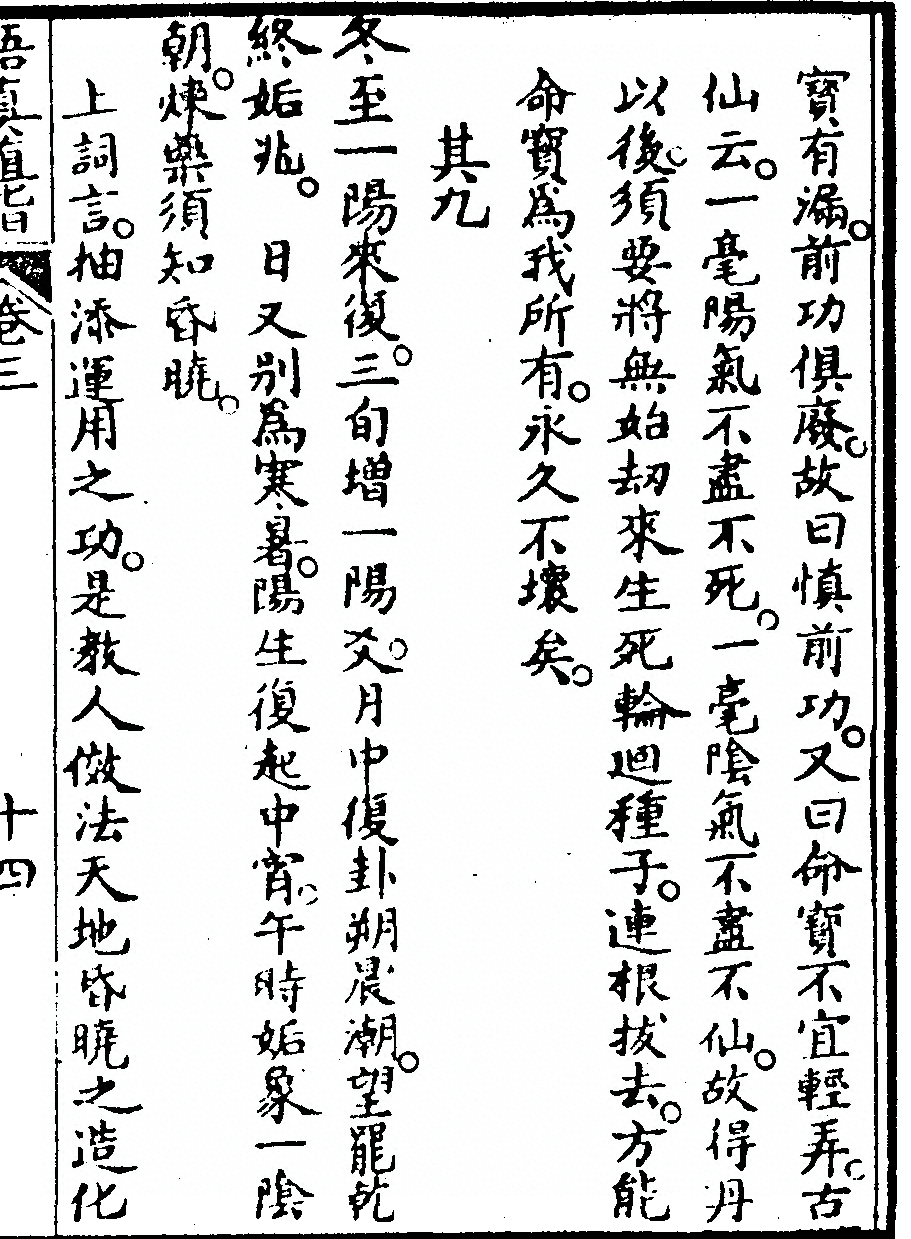 寶有漏。前功俱廢。故曰慎前功。又曰命寶不宜輕弄。古
仙云。一毫陽氣不盡不死。一毫陰氣不盡不仙。故得丹
以後。須要將無始劫來生死輪迴種子。連根拔去。方能
命寶爲我所有。永久不壞矣。
其九
冬至一陽來復。三旬增一陽爻。月中復卦朔晨潮。望罷乾
終姤兆。　日又別爲寒暑。陽生復起中宵。午時姤象一陰
朝。煉藥須知昏曉。
上詞言。抽添運用之功。是教人傚法天地昏曉之造化
悟真直指　卷三　十四